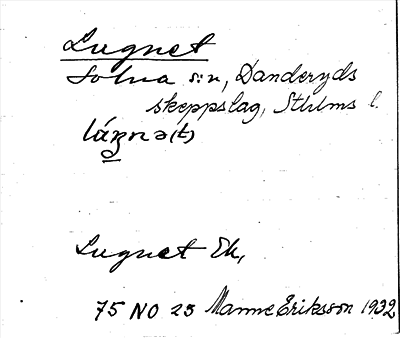 Lugnet
Solna s:n, Danderyds
skeppslag, Sthlms l.
Lugnet Ek,
75 NO 25 Manne Eriksson 1932